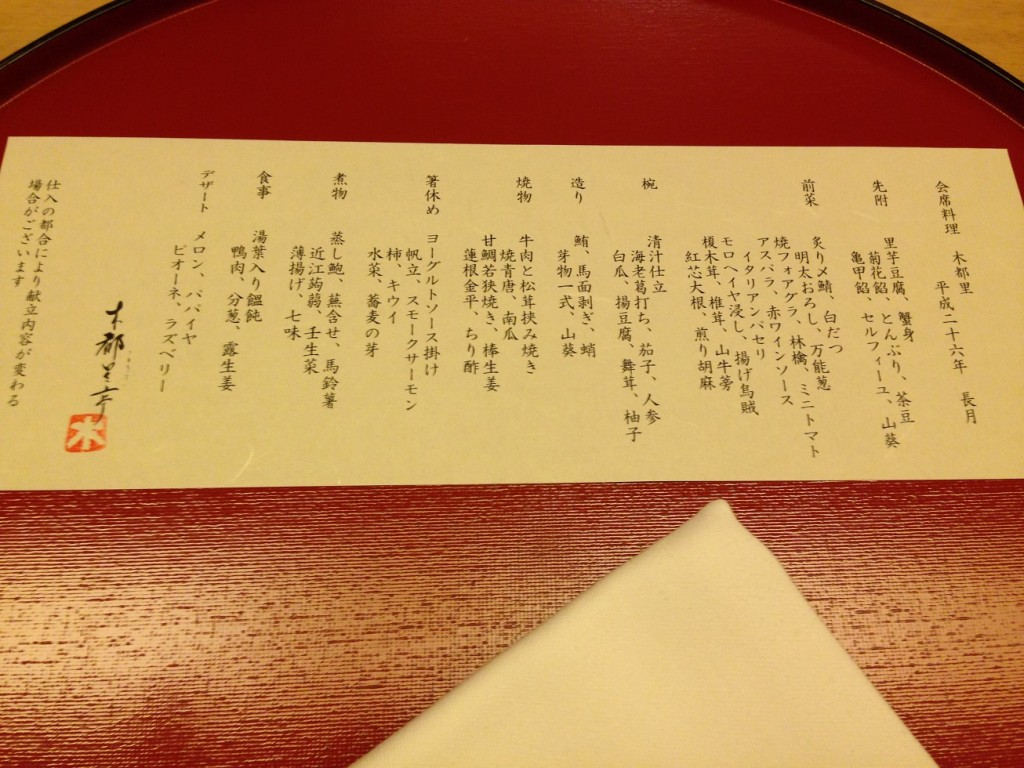 会席料理　木都里
平成二十六年　長月
先附　里芋豆腐、蟹身
菊花餡、とんぶり、茶豆
亀甲餡　セルフィーユ、山葵
前菜　炙り〆鯖、白だつ
明太おろし、万能葱
焼フォアグラ、林檎、ミニトマト
アスパラ、赤ワインソース
イタリアンパセリ
モロヘイヤ浸し、揚げ烏賊
榎木茸、椎茸、山牛蒡
紅芯大根、煎り胡麻
椀　清汁仕立
海老葛打ち、茄子、人参
白瓜、揚豆腐、舞茸、柚子
造り　鮪、馬面剥ぎ、蛸
芽物一式、山葵
焼物　牛肉と松茸挟み焼き
焼青唐、南瓜
甘鯛若狭焼き、棒生姜
蓮根金平、ちり酢
箸休め　ヨーグルトソース掛け
帆立、スモークサーモン
柿、キウイ
水菜、蕎麦の芽
煮物　蒸し鮑、蕪含せ、馬鈴薯
近江蒟蒻、壬生菜
薄揚げ、七味
食事　湯葉入り饂飩
鴨肉、分葱、露生姜
デザート　メロン、パパイヤ
ピオーネ、ラズベリー
木都里亭
きとりてい
木
仕入の都合により献立内容が変わる
場合がございます